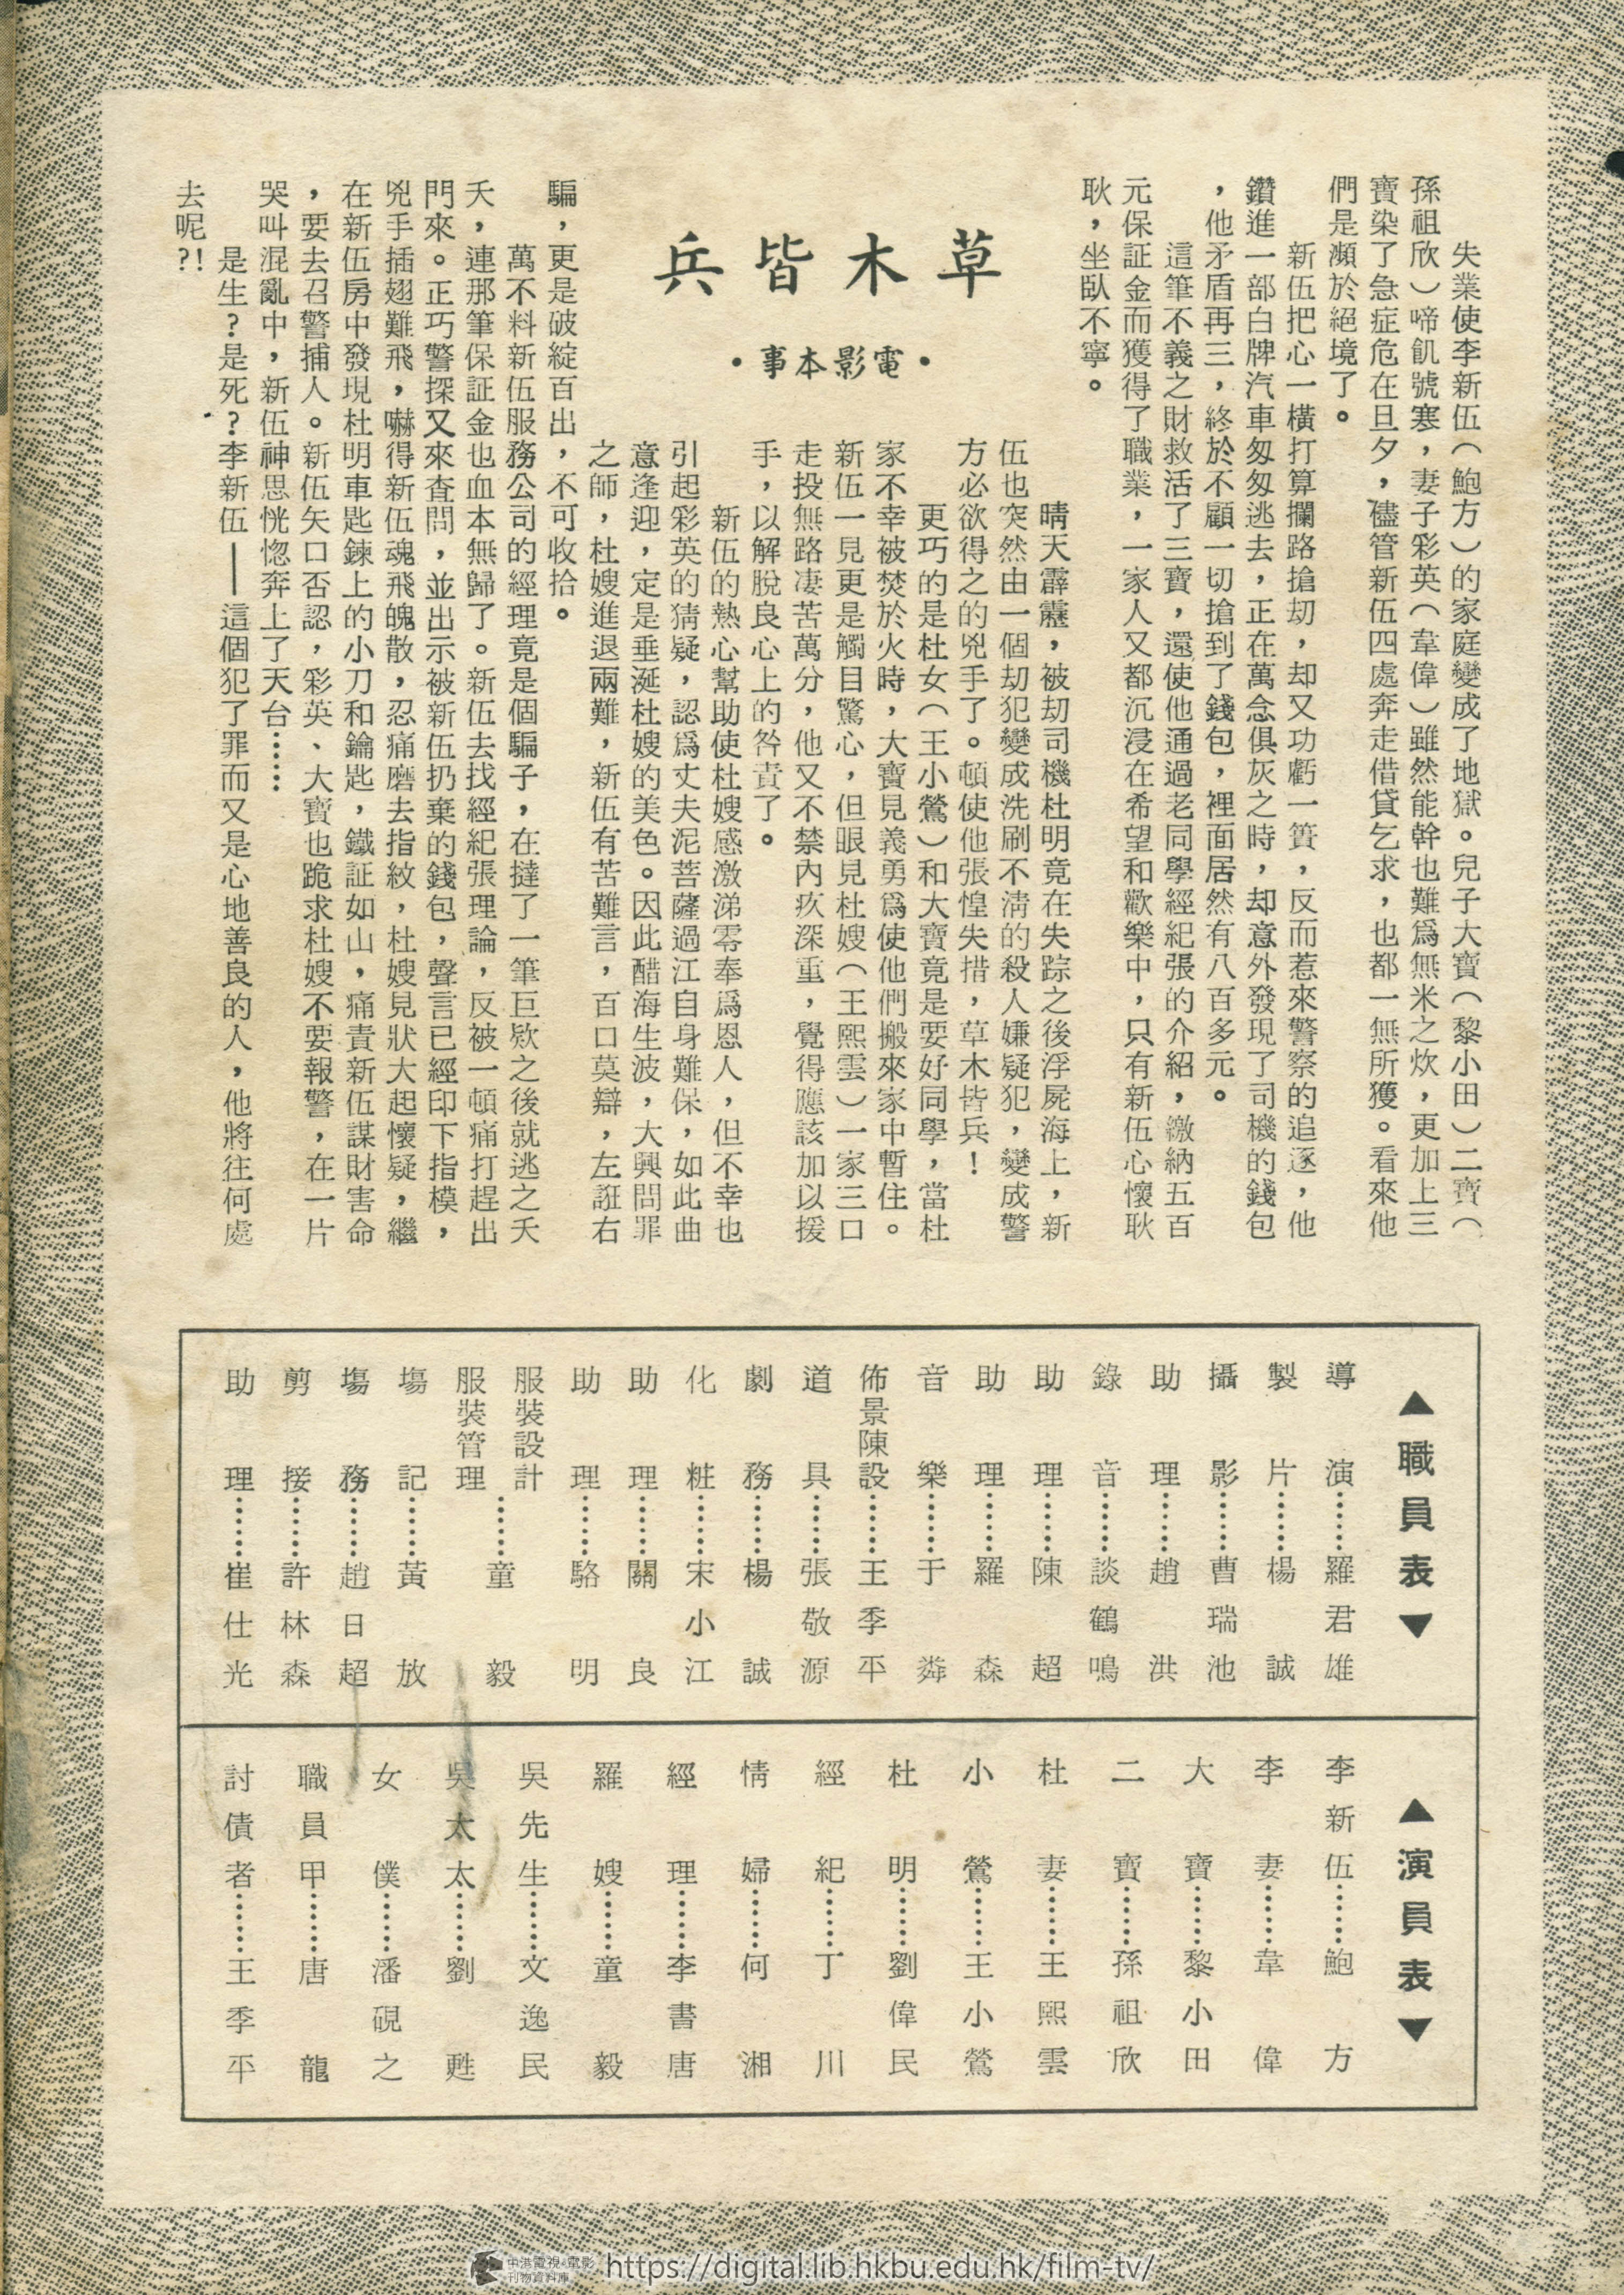 草木皆兵
·電影本事·
失業使李新伍（鮑方）的家庭變成了地獄。兒子大寶（黎小田）二寶（
孫祖欣）啼飢號寒，妻子彩英（韋偉）雖然能幹也難爲無米之炊，更加上三
寶染了急症危在旦夕，儘管新伍四處奔走借貸乞求，也都一無所獲。看來他
們是瀕於絕境了。
新伍把心一橫打算攔路搶刧，却又功虧一簣，反而惹來警察的追逐，他
鑽進一部白牌汽車匆匆逃去，正在萬念俱灰之時，却意外發現了司機的錢包
，他矛盾再三，終於不顧一切搶到了錢包，裡面居然有八百多元。
這筆不義之財救活了三寶，還使他通過老同學經紀張的介紹，繳納五百
元保証金而獲得了職業，一家人又都沉浸在希望和歡樂中，只有新伍心懷耿
耿，坐臥不寧。
晴天霹靂，被刧司機杜明竟在失踪之後浮屍海上，新
伍也突然由一個刧犯變成洗刷不清的殺人嫌疑犯，變成警
方必欲得之的兇手了。頓使他張惶失措，草木皆兵！
更巧的是杜女（王小鶯）和大寶竟是要好同學，當杜
家不幸被焚於火時，大寶見義勇爲使他們搬來家中暫住。
新伍一見更是觸目驚心，但眼見杜嫂（王熙雲）一家三口
走投無路凄苦萬分，他又不禁內疚深重，覺得應該加以援
手，以解脫良心上的咎責了。
新伍的熱心幫助使杜嫂感激涕零奉爲恩人，但不幸也
引起彩英的猜疑，認爲丈夫泥菩薩過江自身難保，如此曲
意逢迎，定是垂涎杜嫂的美色。因此醋海生波，大興問罪
之師，杜嫂進退兩難，新伍有苦難言，百口莫辯，左誑右
騙，更是破綻百出，不可收拾。
萬不料新伍服務公司的經理竟是個騙子，在撻了一筆巨欵之後就逃之夭
夭，連那筆保証金也血本無歸了。新伍去找經紀張理論，反被一頓痛打趕出
門來。正巧警探又來查問，並出示被新伍扔棄的錢包，聲言已經印下指模，
兇手插翅難飛，嚇得新伍魂飛魄散，忍痛磨去指紋，杜嫂見狀大起懷疑，繼
在新伍房中發現杜明車匙鍊上的小刀和鑰匙，鐵証如山，痛責新伍謀財害命
，要去召警捕人。新伍矢口否認，彩英、大寶也跪求杜嫂不要報警，在一片
哭叫混亂中，新伍神思恍惚奔上了天台……
是生？是死？李新伍——這個犯了罪而又是心地善良的人，他將往何處
去呢？！
▲職員表▼
導演……羅君雄
製片……楊誠
攝影……曹瑞池
助理……趙洪
錄音……談鶴鳴
助理……陳超
助理……羅森
音樂……于粦
佈景陳設……王季平
道具……張敬源
劇務……楊誠
化粧……宋小江
助理……關良
助理……駱明
服裝設計
服裝管理……童毅
塲記……黃放
塲務……趙日超
剪接……許林森
助理……崔仕光
▲演員表▼
李新伍……鮑方
李妻……韋偉
大寶……黎小田
二寶……孫祖欣
杜妻……王熙雲
小鶯……王小鶯
杜明……劉偉民
經紀……丁川
情婦……何湘
經理……李書唐
羅嫂……童毅
吳先生……文逸民
吳太太……劉甦
女僕……潘硯之
職員甲……唐龍
討債者……王季平
中港電視·電影
刊物資料庫
https://digital.lib.hkbu.edu.hk/film-tv/